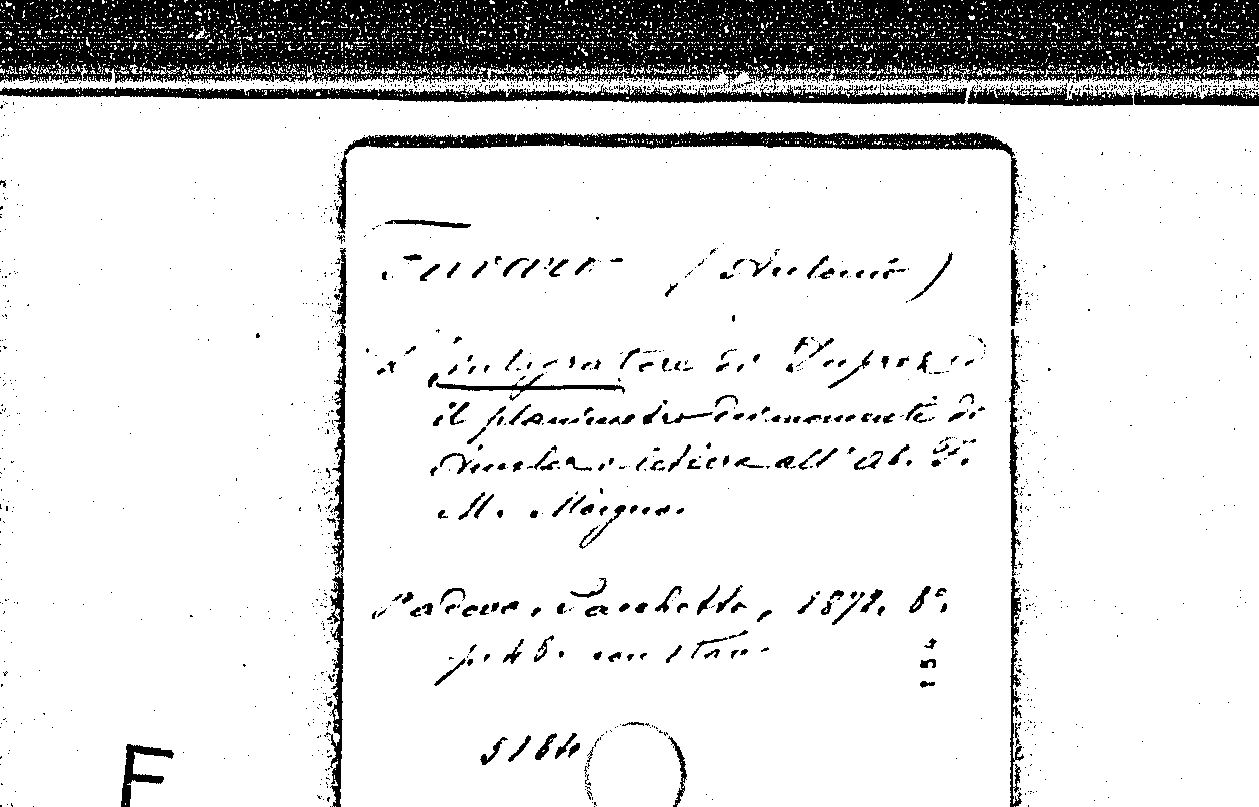 Favaro (Antonio)
L'integratore di Duprez ed
il planimetro dei momenti di
Amsler: lettera all'Ab. F.
M. Moigno.
Padova, Sacchetto, 1872. 8º.
p. 48. con 1 tav.
154
5184
F